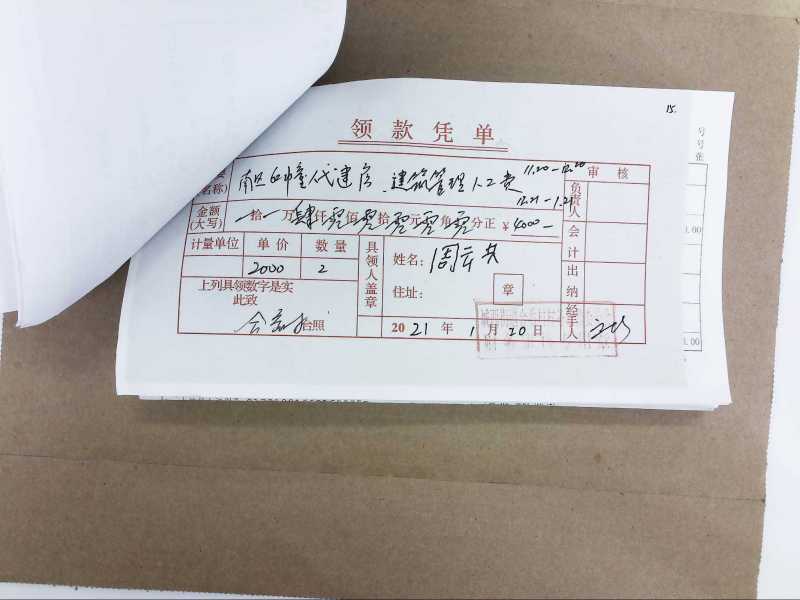 15.
领款凭单
(名称) 南区 幢代建房、建筑管理人工费 11.20-12.20
12.21-1.21
审核
金额(大写) 一拾一万肆仟零佰零拾零元零角零分正 ¥4000-
计量单位 单价 数量
2000 2
上列具领数字是实
此致
台照
具领人盖章
姓名: 周
住址: 章
2021年1月20日
负责人
会计
出纳
经手人
号
号
张
1.00
.00